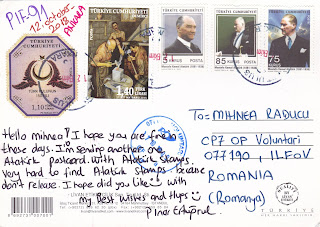 PTF-91
12. October
2018
ANKARA
TÜRKİYE
CUMHURİYETİ
1,10
TÜRKİYE CUMHURİYETİ
1,40
TÜRKİYE CUMHURİYETİ
3 KURUŞ POSTA
TÜRKİYE CUMHURİYETİ
85 KURUŞ POSTA
TÜRKİYE CUMHURİYETİ
75
Hello mihnea! I hope you are fine to
these days. I'm sending another one
Atatürk Postcard with Atatürk Stamps.
very hard to find Atatürk Stamps because
don't release. I hope did you like with
my Best wishes and Hugs
Pınar
To= MIHNEA RADUCU
CP7 OP Voluntari
077190, ILFOV
ROMANIA
(Romanya)
TÜRKİYE